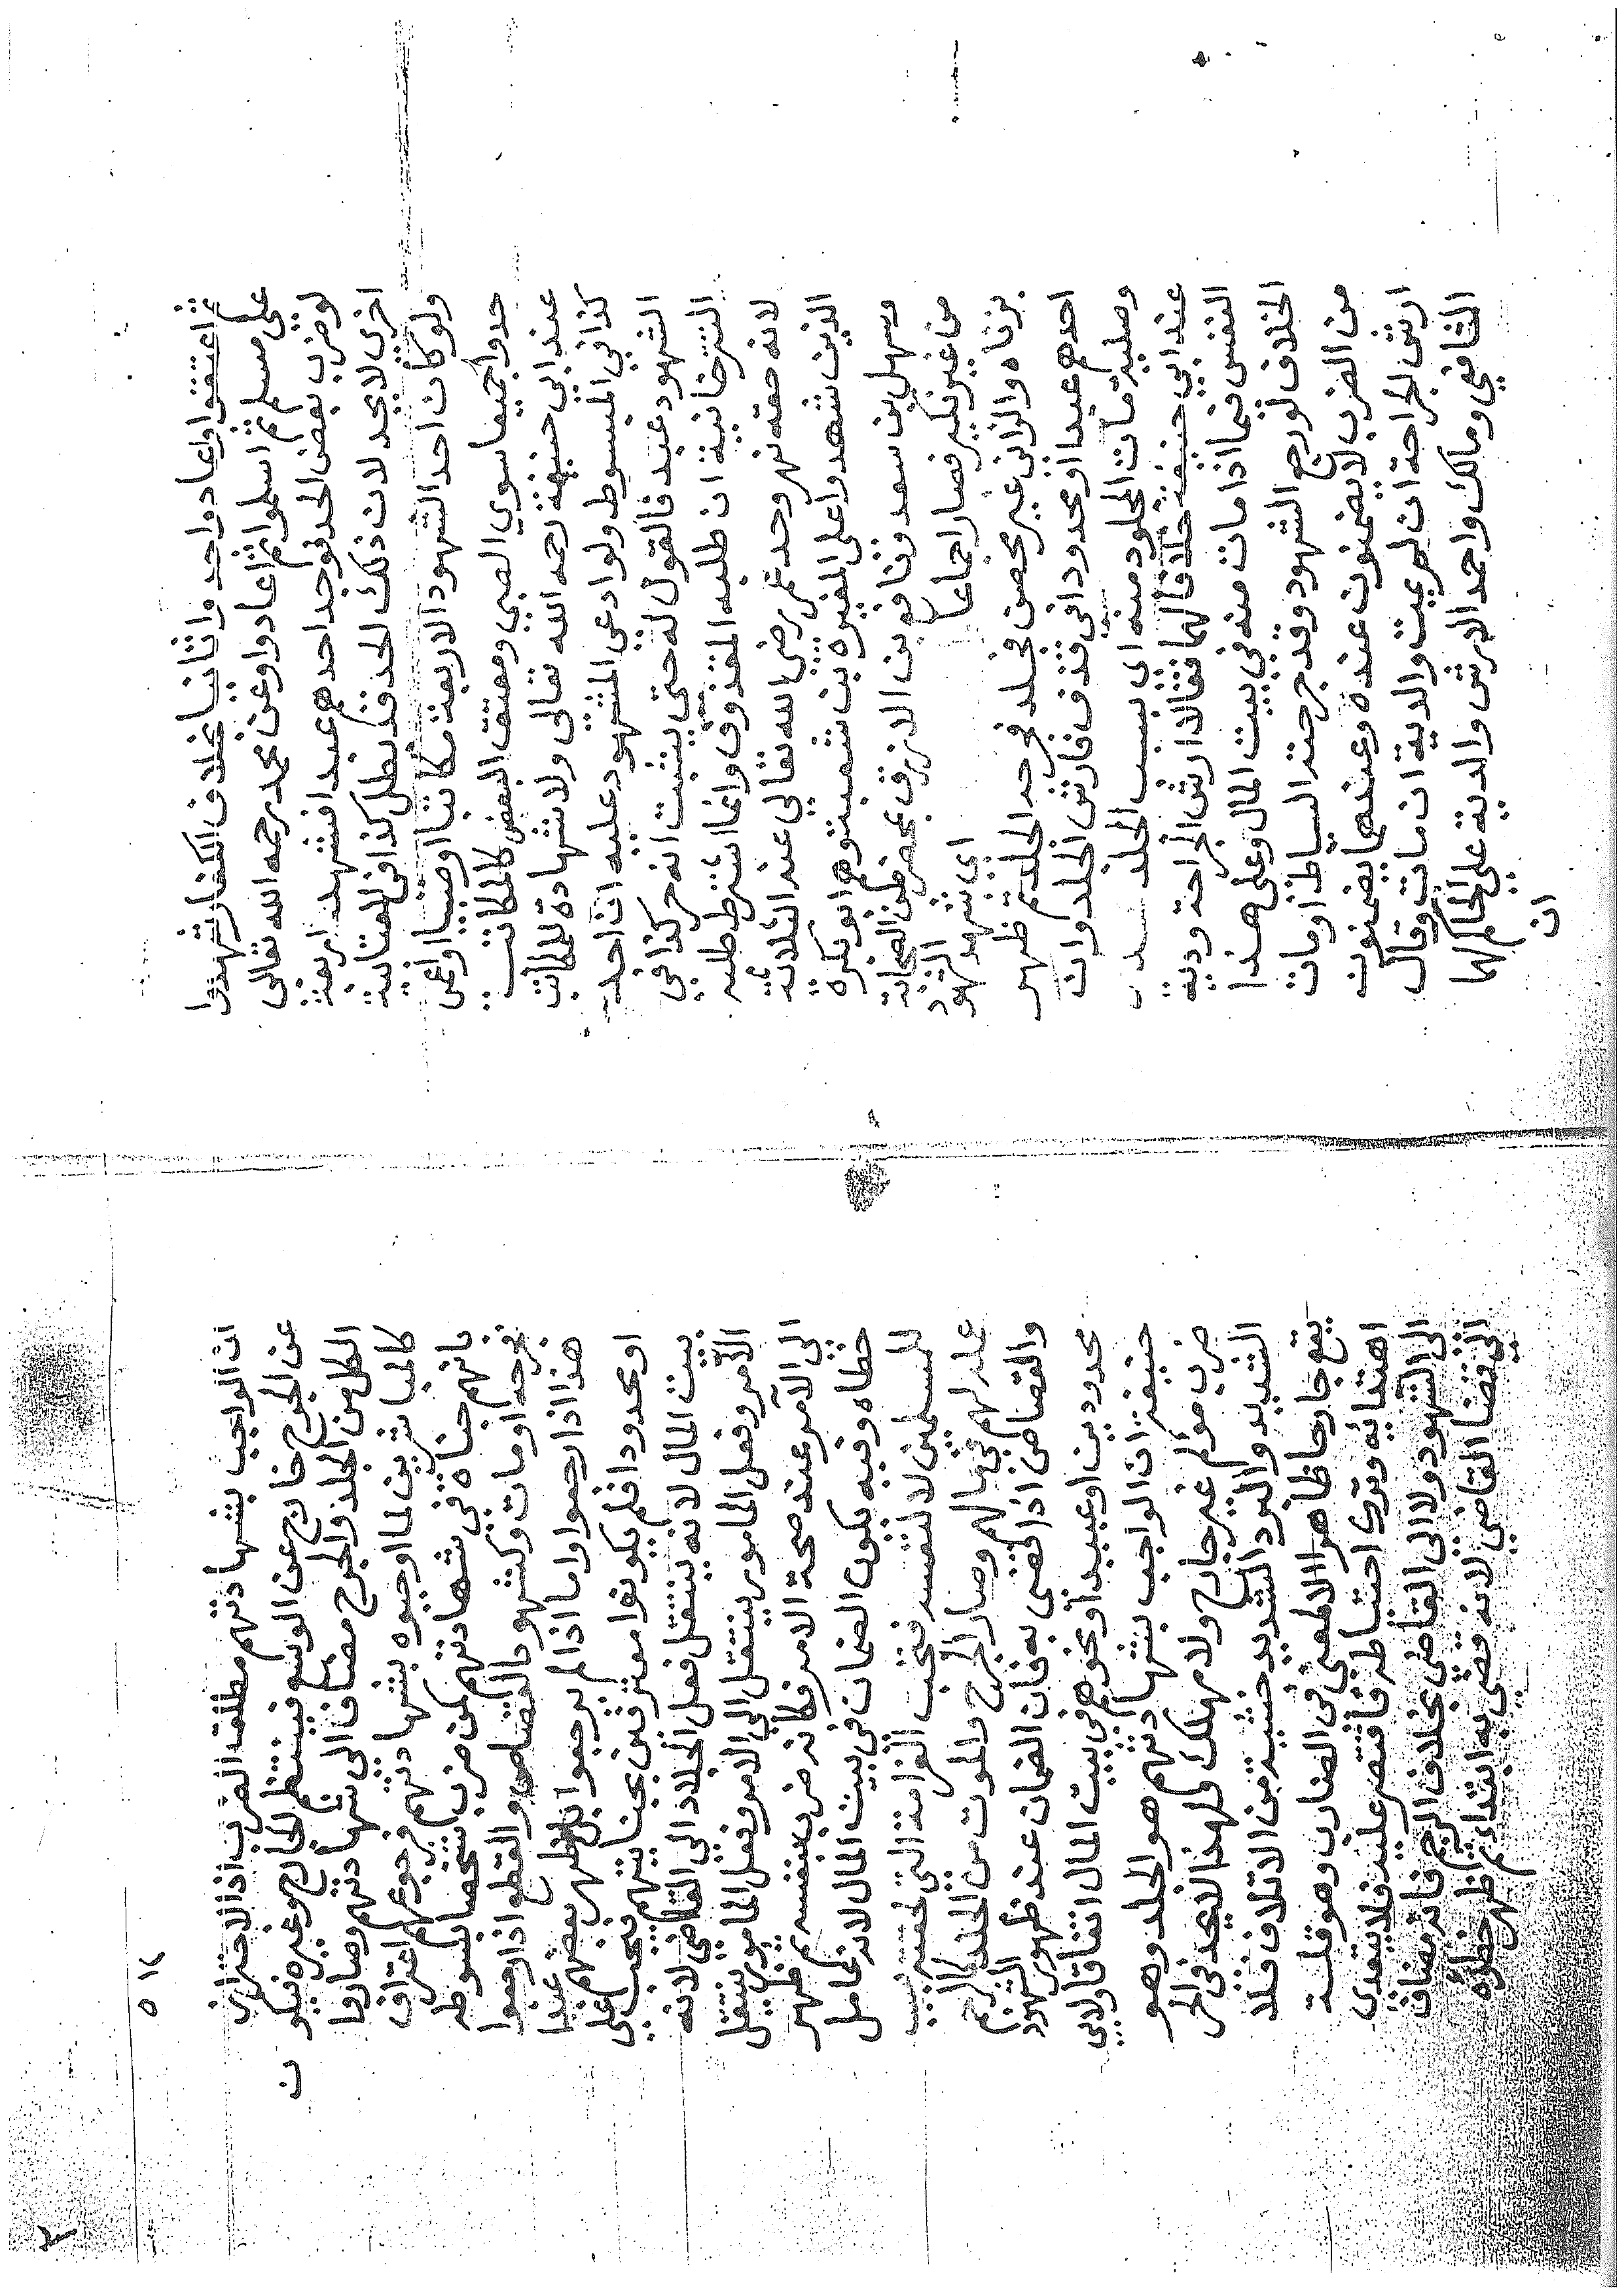 ثم اعتقوا واعادوا حدوا ثانيا بخلاف الكفار شهدوا
على مسلم ثم اسلموا ثم اعادوا وعن محمد رحمه الله تعالى
لو ضرب بعض الحد فوجد احدهم عبدا فشهد اربعة
اخرى لا يحد لان ذلك الحد قد بطل كذا في العتابية
ولو كان احد الشهود الاربعة مكاتبا او صبيا او اعمى
حدوا جميعا سوى الصبي ومعتق البعض كالمكاتب
عند ابي حنيفة رحمه الله تعالى ولا شهادة للمكاتب
كذا في المبسوط ولو ادعى المشهود عليه ان احد
الشهود عبد فالقول له حتى يثبت انه حر كذا في
التترخانية ان طلبه المقذوف وانما اشترط طلبه
لانه حقه نهر وحد عمر رضي الله تعالى عنه الثلاثة
الذين شهدوا على المغيره بن شعبة وهم ابو بكرة
وسهيل بن سعد ونافع بن الازرق بمحضر من الصحابة
من غير نكير فصار اجماعا اى شهد الشهود
بزناه والزانى غير محصن فجلد فجرحه الجلد ثم ظهر
احدهم عبدا او محدودا في قذف فارش الجلد وان
وصلية مات المجلود منه اى بسبب الجلد هدر
عند ابي حنيفة خلافا لهما فقالا ارش الجراحة ودية
النفس فيما اذا مات منه في بيت المال وعلى هذا
الخلاف لو رجع الشهود وقد جرحته السياط او مات
من الضرب لا يضمنون عنده وعندهما يضمنون
ارش الجراحة ان لم يمت والدية ان مات وقال
الشافعي ومالك واحمد الارش والدية على الحاكم لهما
ان
٥١٤
ان الواجب بشهادتهم مطلق الضرب اذ الاحتراز
عن الجرح خارج عن الوسع فينتظم الجارح وغيره فيكون
الكل من الجلد والجرح مضافا الى شهادتهم وصاروا
كالمباشرين لما اوجبوه بشهادتهم فرجوعهم اعتراف
بانهم جناة في شهادتهم كمن ضرب شخصا بسوط
فجرحه او مات وكشهود القصاص والقطع اذا رجعوا
هذا اذا رجعوا واما اذا لم يرجعوا بل ظهر بعضهم عبدا
او محدودا فلم يكونوا معترفين بجنايتهم فيجب على
بيت المال لانه ينتقل فعل الجلاد الى القاضي لانه
الآمر وفعل المامور ينتقل الى الامر وفعل المامور ينتقل
الى الآمر عند صحة الامر فكانه ضرب بنفسه ثم ظهر
خطاه وفيه يكون الضمان في بيت المال لانه عامل
للمسلمين لا لنفسه فتجب الغرامة التى لحقته بسبب
عمله لهم في مالهم وصار الجرح والموت من الجلد كالرجم
والقصاص اذا قضى به فان الضمان عند ظهور الشهود
محدودين او عبيدا او نحوهم في بيت المال اتفاقا ولابي
حنيفة ان الواجب بشهادتهم هو الجلد وهو
ضرب مؤلم غير جارح ولا مهلك ولهذا لا يحد في الحر
الشديد والبرد الشديد خشية من الاتلاف فلا
يقع جارحا ظاهرا الا لمعنى في الضارب وهو قلة
اهتدائه وترك احتياطه فاقتصر عليه فلا يتعدى
الى الشهود ولا الى القاضى بخلاف الرجم فانه مضاف
الى قضا القاضي لانه قضى به ابتداء ثم ظهر خطؤه